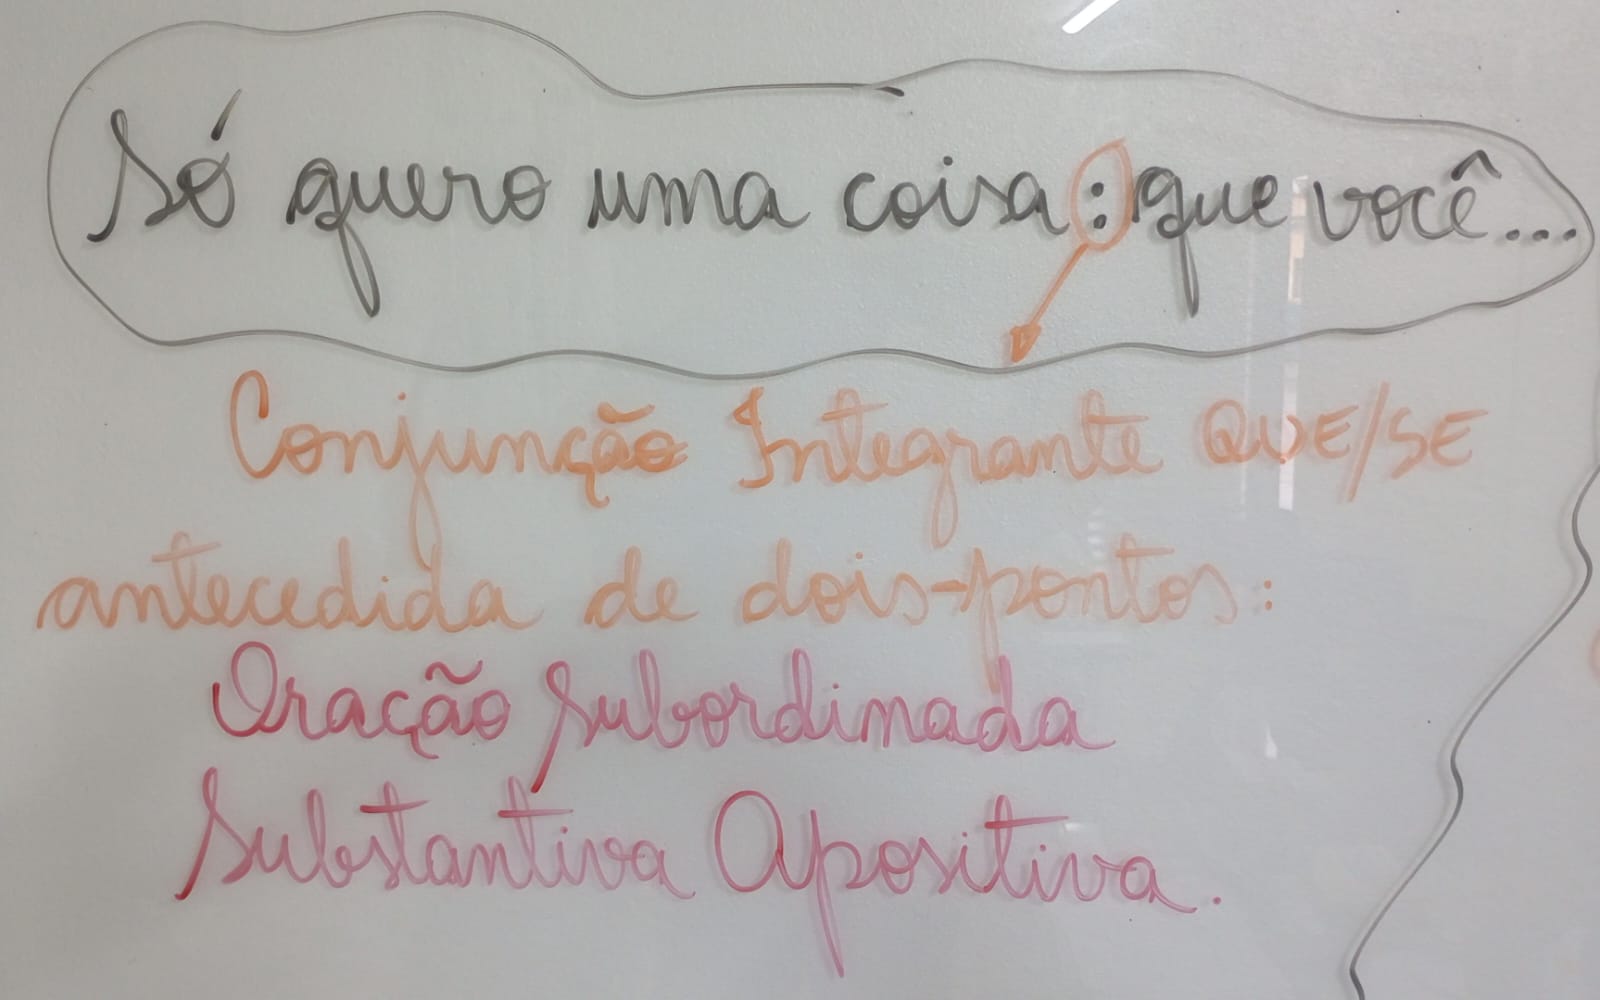 Só quero uma coisa: que você...
Conjunção Integrante QUE/SE
antecedida de dois-pontos:
Oração Subordinada
Substantiva Apositiva.